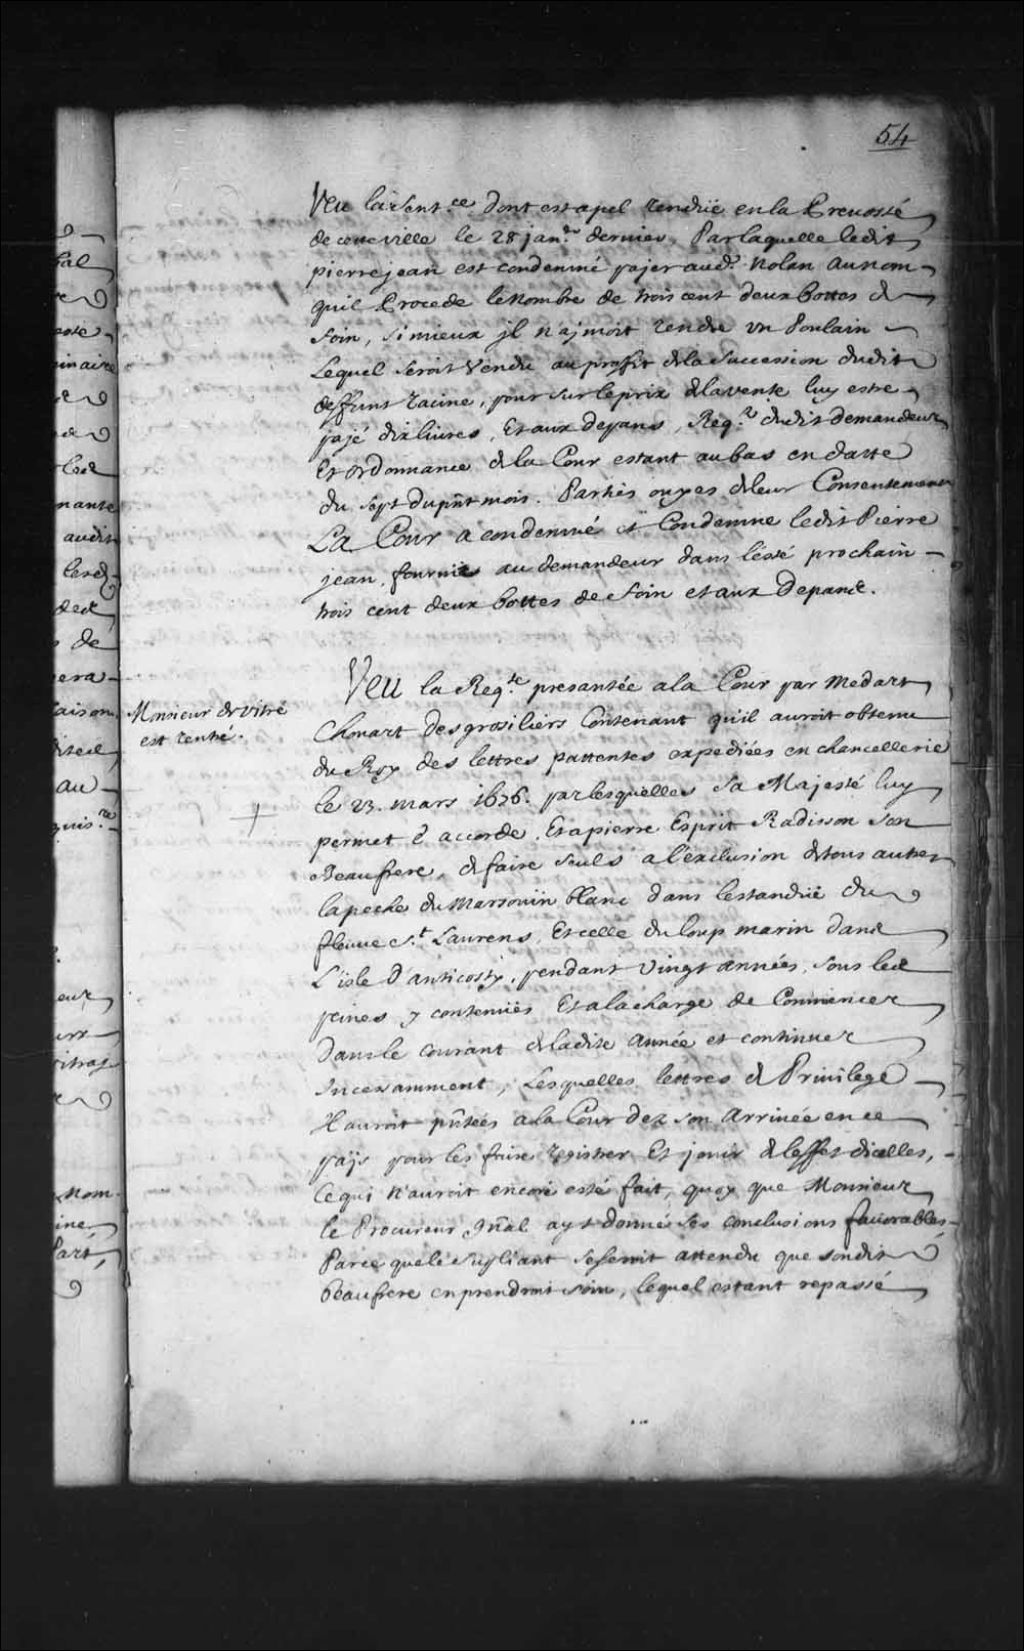 54
Veu la Sent.ce dont est apel rendüe en la Prevosté
de cette ville le 28 janr. dernier, Par laquelle ledit
pierre jean est condemné payer aud. Nolan au nom
quil Procede le Nombre de trois cent deux bottes de
foin, si mieux jl n'aimoit rendre un Poulain
Lequel seroit Vendu au profit de la Succession dudit
deffunt racine, pour sur le prix de la vente luy estre
payé dix livres, Et aux depans, Reqte. dudit demandeur
Et ordonnance de la Cour estant au bas en datte
du sept du pnt mois. Parties ouyes de leur Consentement
La Cour a condemné et Condemne ledit Pierre
jean, fournir au demandeur dans l'esté prochain
trois cent deux bottes de foin et aux Depans.
Monsieur de vitré
est rentré.
Veu la Reqte. presantée a la Cour par Medart
Chouart desgrosiliers Contenant qu'il auroit obtenu
du Roy des lettres pattentes expediées en chancellerie
le 23. mars 1676. par lesquelles Sa Majesté luy
permet & accorde, Et a pierre Esprit Radisson Son
Beaufrere, de faire Seuls a l'exclusion de tous autres
la peche du Marsoüin blanc dans lestandüe du
fleuve St. Laurens, Et celle du loup marin dans
L'isle D'anticosty, pendant vingt années, sous les
peines y contenuës Et a la charge de Commencer
Dans le courant de ladite année et continuer
Incessamment, Lesquelles lettres de Privilege
Il auroit pntées a la Cour dez son arrivée en ce
païs pour les faire registrer Et jouir de l'effet dicelles,
Ce qui n'auroit encore esté fait, quoy que Monsieur
le Procureur gnal ayt donné ses conclusions favorables
Parce que le Supliant se seroit attendu que sondit
Beaufrere en prendroit soin, lequel estant repassé